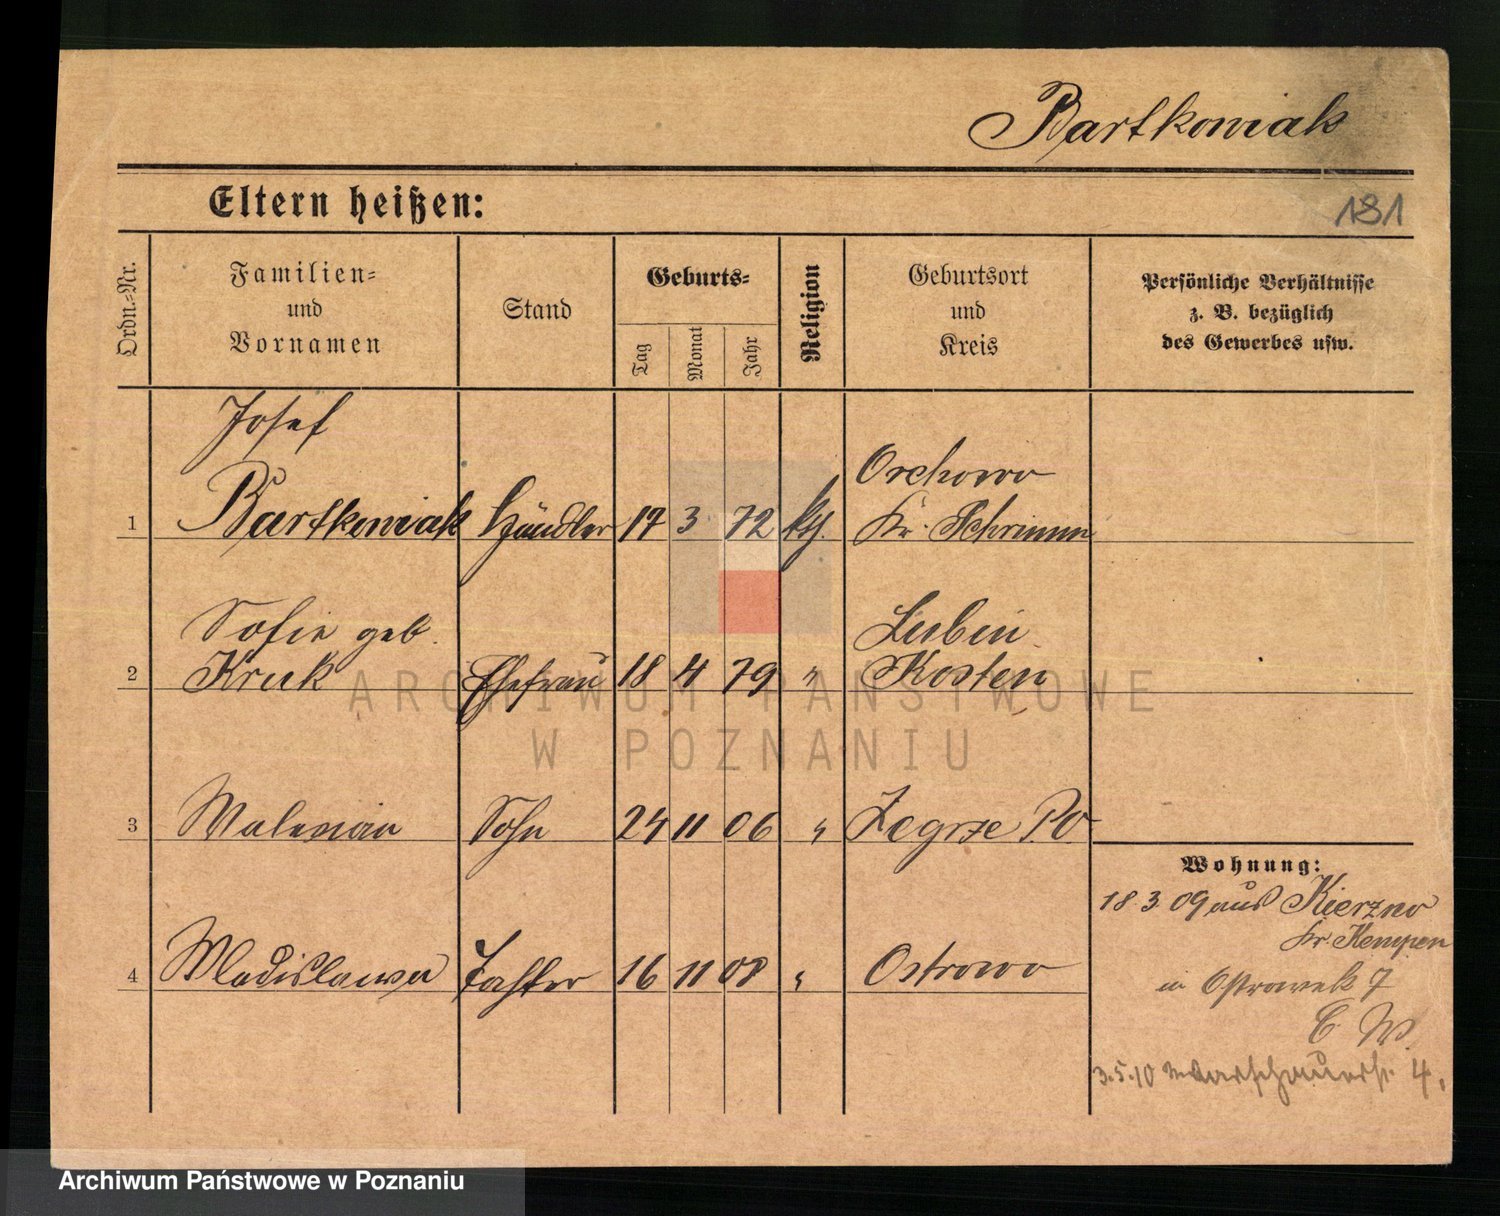 Bartkowiak
181
Eltern heißen:
Ordn.-Nr.
Familien-
und
Vornamen
Stand
Geburts-
Tag
Monat
Jahr
Religion
Geburtsort
und
Kreis
Persönliche Verhältnisse
z. B. bezüglich
des Gewerbes usw.
Josef
1 Bartkowiak Händler 17 3 72 kth. Orchowo
Kr. Schrimm
Sofie geb.
2 Kruk Ehefrau 18 4 79 " Lubin
Kosten
3 Walerian Sohn 24 11 06 " Zegrze PO
4 Wladislawa Tochter 16 11 08 " Ostrowo
Wohnung:
18 3 09 aus Kierzno
Kr. Kempen
in Ostrowek 7
3.5.10 Warschauerstr. 4.
ARCHIWUM PAŃSTWOWE
W POZNANIU
Archiwum Państwowe w Poznaniu